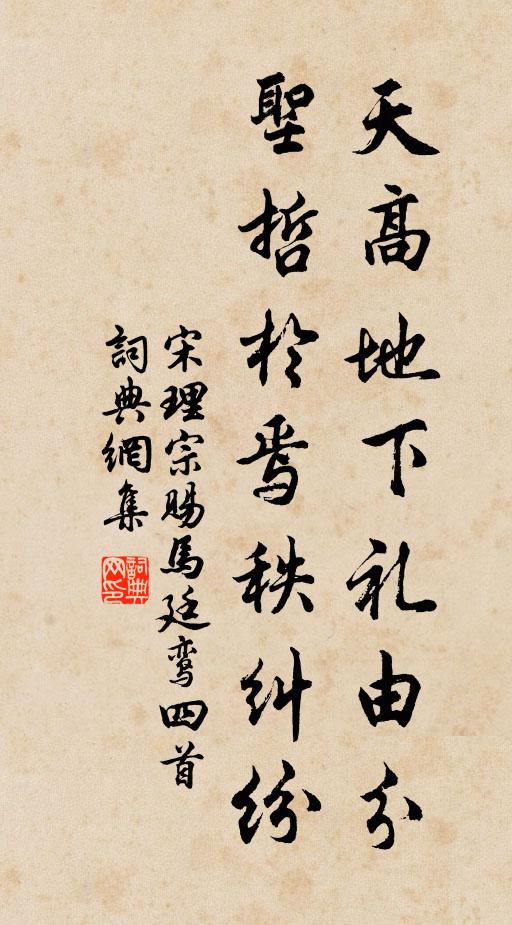 天高地下礼由分
聖哲於焉秩糾紛
宋理宗賜馬廷鸾四首
詞典網集
詞典网印